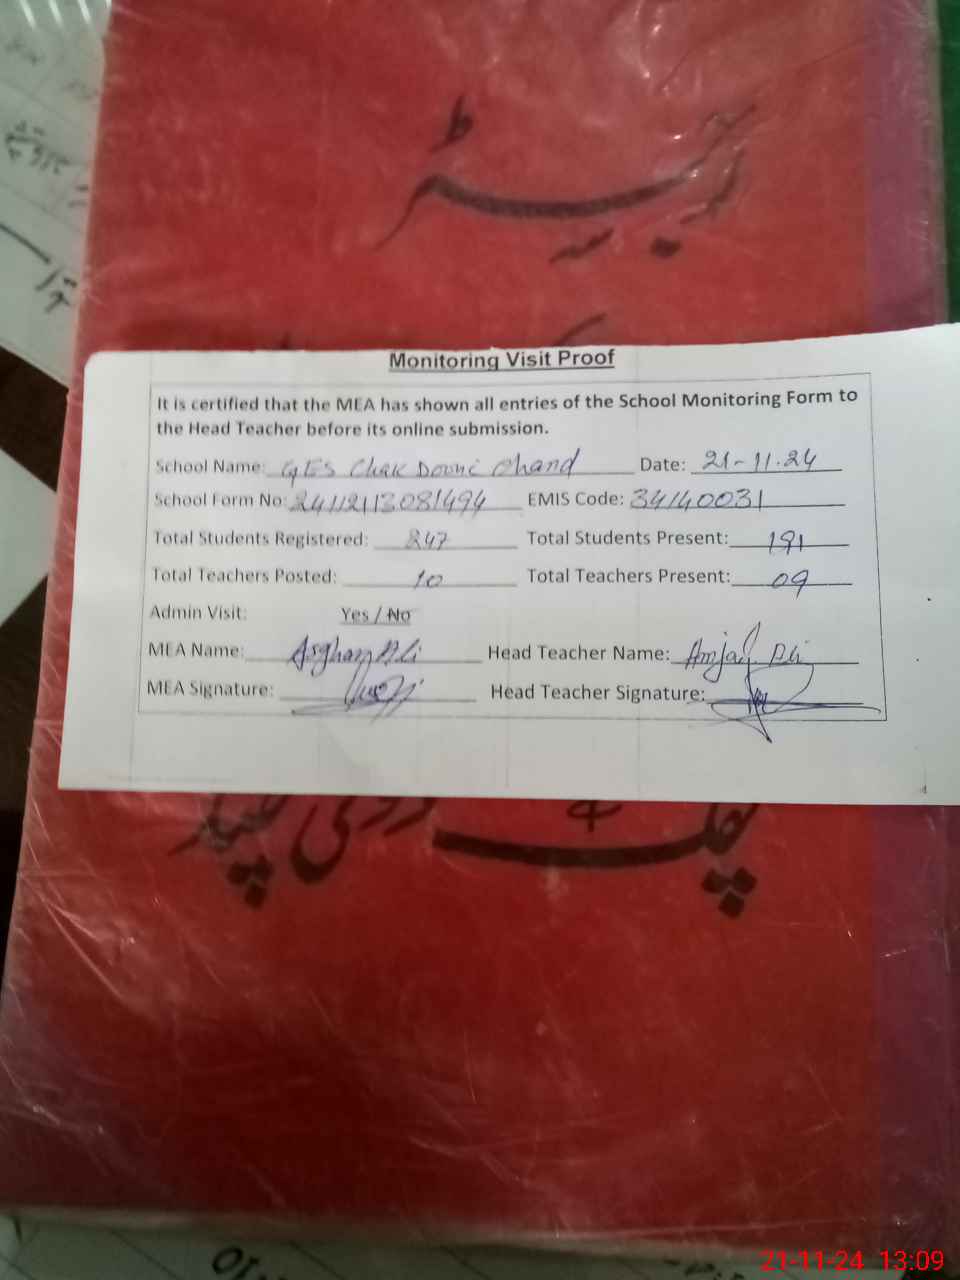 Monitoring Visit Proof
It is certified that the MEA has shown all entries of the School Monitoring Form to
the Head Teacher before its online submission.
School Name: GES Chak Dooni Chand Date: 21-11-24
School Form No: 24112113081494 EMIS Code: 34140031
Total Students Registered: 247 Total Students Present: 191
Total Teachers Posted: 10 Total Teachers Present: 09
Admin Visit: Yes / No
MEA Name: Asghar Ali Head Teacher Name: Amjad Ali
MEA Signature: Head Teacher Signature:
چک دونی چند
21-11-24 13:09